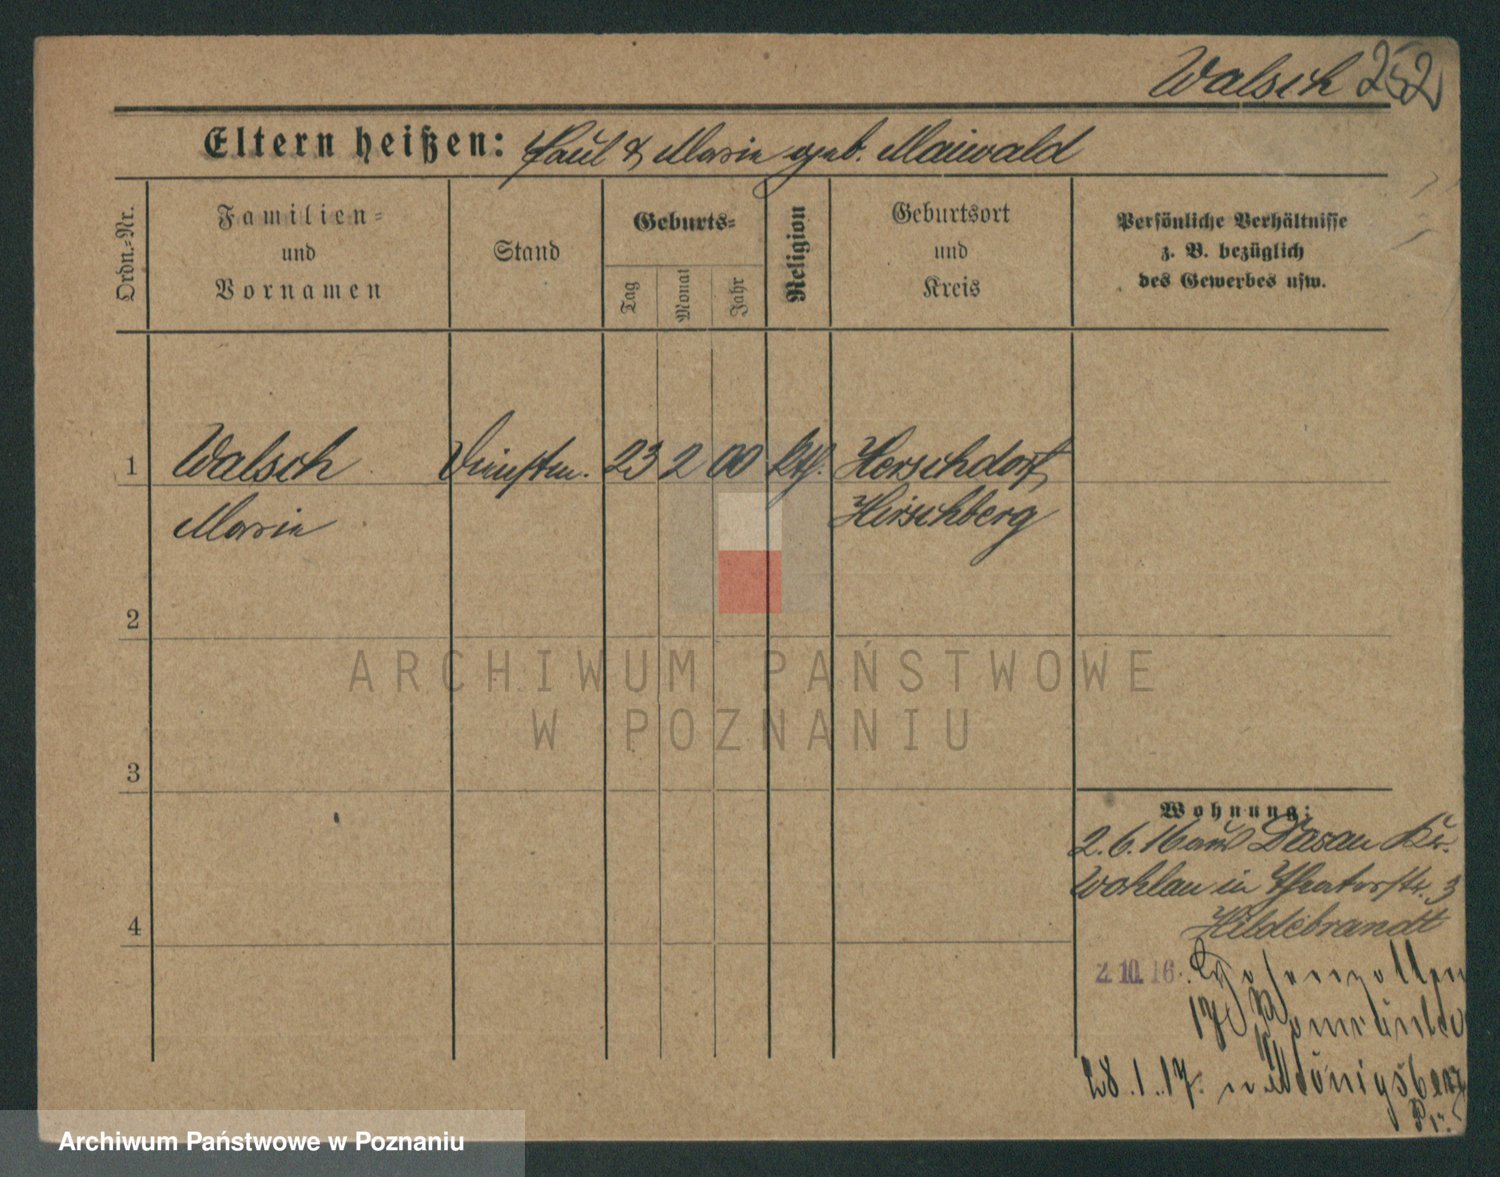 Walsch 252
Eltern heißen: Paul & Marie geb. Maiwald
Ordn.=Nr.
Familien=
und
Vornamen
Stand
Geburts=
Tag
Monat
Jahr
Religion
Geburtsort
und
Kreis
Persönliche Verhältnisse
z. B. bezüglich
des Gewerbes usw.
1 Walsch 23 2 00 Kth. Herschdorf
Marie Hirschberg
2
3
4
Wohnung:
2.6.16 aus Kr.
Wohlau in Theaterstr. 3
Hildebrandt
2.10.16
17
28.1.17. n. Königsberg
Pr.
ARCHIWUM PAŃSTWOWE
W POZNANIU
Archiwum Państwowe w Poznaniu